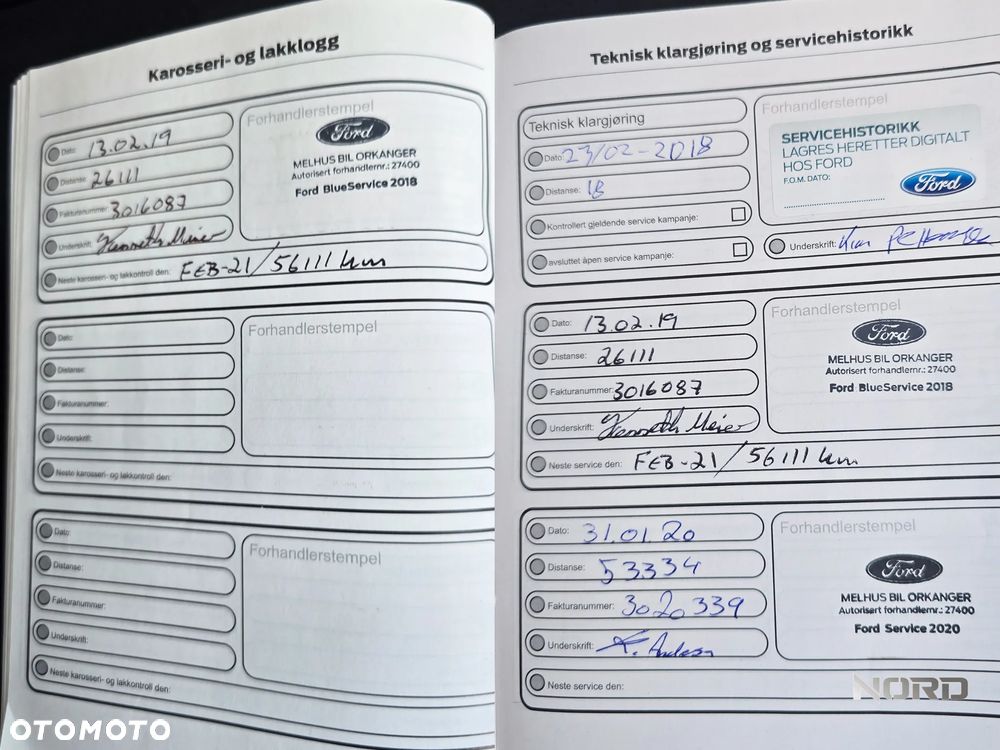 Karosseri- og lakklogg
Dato: 13.02.19
Distanse: 26111
Fakturanummer: 3016087
Underskrift: Kenneth Meier
Neste karosseri- og lakkontroll den: FEB-21/56111 km
Forhandlerstempel
Ford
MELHUS BIL ORKANGER
Autorisert forhandlernr.: 27400
Ford BlueService 2018
Dato:
Distanse:
Fakturanummer:
Underskrift:
Neste karosseri- og lakkontroll den:
Forhandlerstempel
Dato:
Distanse:
Fakturanummer:
Underskrift:
Neste karosseri- og lakkontroll den:
Forhandlerstempel
OTOMOTO
Teknisk klargjøring og servicehistorikk
Teknisk klargjøring
Dato: 23/02-2018
Distanse: 18
Kontrollert gjeldende service kampanje:
avsluttet åpen service kampanje:
Forhandlerstempel
SERVICEHISTORIKK
LAGRES HERETTER DIGITALT
HOS FORD
F.O.M. DATO:
Ford
Underskrift: Kim
Dato: 13.02.19
Distanse: 26111
Fakturanummer: 3016087
Underskrift: Kenneth Meier
Neste service den: FEB-21/56111 km
Forhandlerstempel
Ford
MELHUS BIL ORKANGER
Autorisert forhandlernr.: 27400
Ford BlueService 2018
Dato: 31.01.20
Distanse: 53334
Fakturanummer: 3020339
Underskrift: K. Andersen
Neste service den:
Forhandlerstempel
Ford
MELHUS BIL ORKANGER
Autorisert forhandlernr.: 27400
Ford Service 2020
NORD